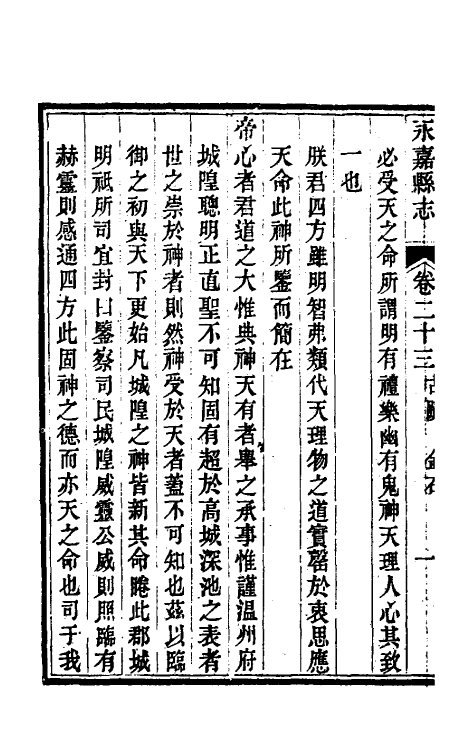 永嘉縣志 卷二十三 古蹟 金石 一
必受天之命所謂明有禮樂幽有鬼神天理人心其致
一也
朕君四方雖明智弗類代天理物之道實罄於衷思應
天命此神所鑒而簡在
帝心者君道之大惟典神天有者舉之承事惟謹温州府
城隍聰明正直聖不可知固有超於高城深池之表者
世之崇於神者則然神受於天者蓋不可知也茲以臨
御之初與天下更始凡城隍之神皆新其命睠此郡城
明祇所司宜封曰鑒察司民城隍威靈公威則照臨有
赫靈則感通四方此固神之德而亦天之命也司于我